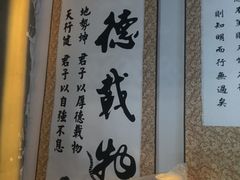 則知明而行無過矣
德載物
地勢坤 君子以厚德載物
天行健 君子以自強不息